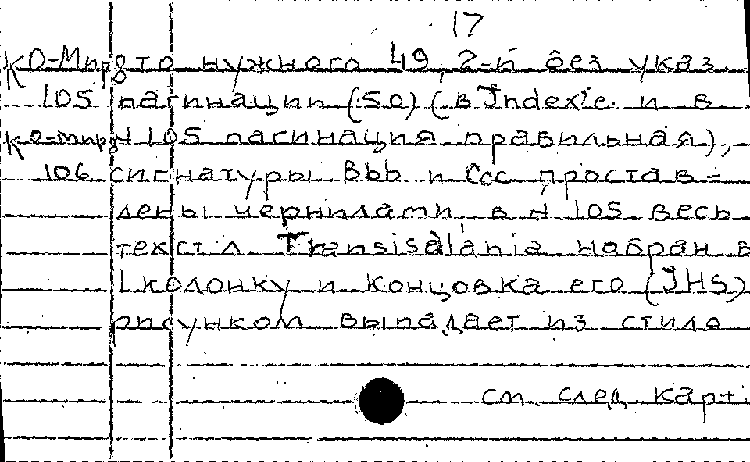 17
КО-Мир то нужного 49, 2-й без указ.
105 пагинации (50) (в Index'е и в
КО-мир N 105 пагинация правильная),
106 сигнатуры Bbb и Ccc простав-
лены чернилами, в N 105 весь
текст л. Transisalania набран в
1 колонку и концовка его (JHS)
рисунком выпадает из стиля
см. след. карт.